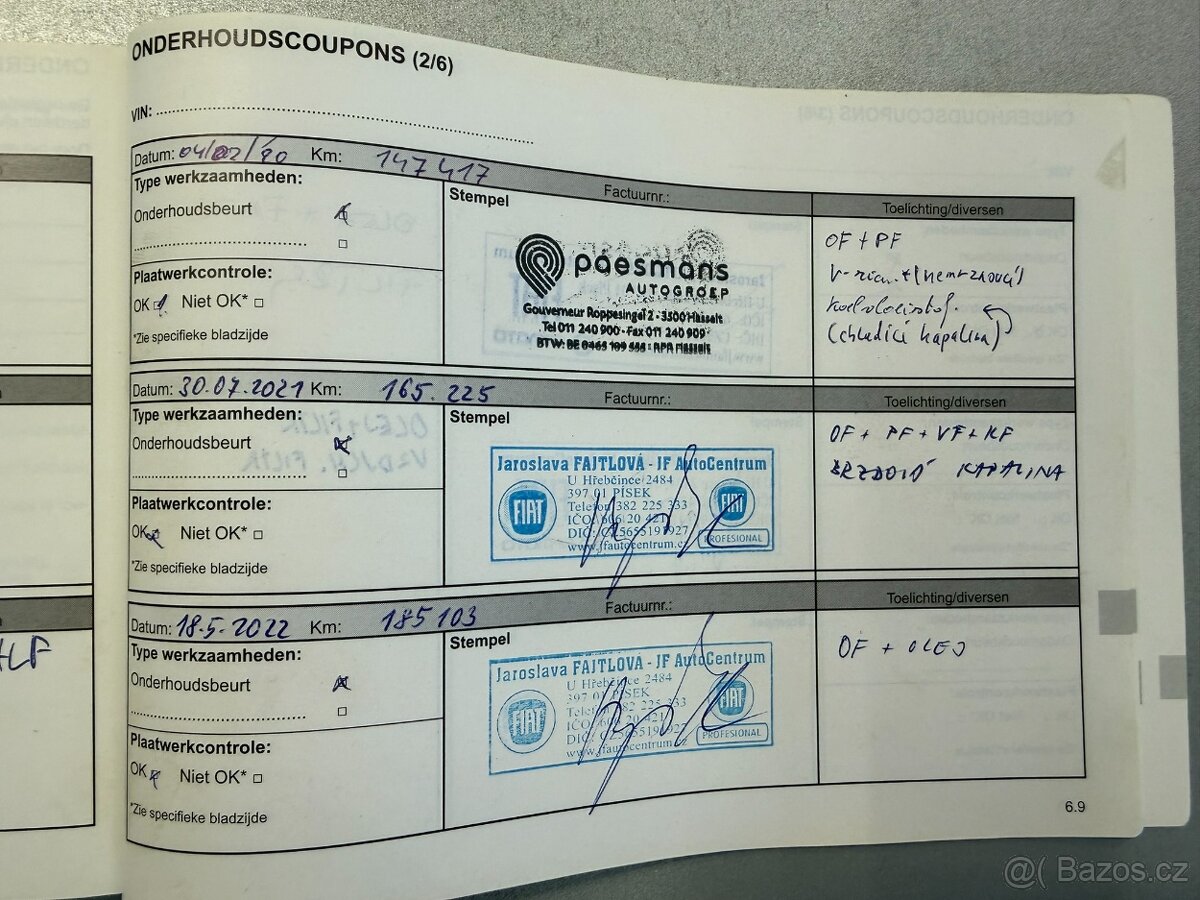 ONDERHOUDSCOUPONS (2/6)
VIN:
Datum: 04/02/20 Km: 147417
Factuurnr.:
Type werkzaamheden:
Onderhoudsbeurt
Plaatwerkcontrole:
OK Niet OK*
*Zie specifieke bladzijde
Stempel
paesmans
AUTOGROEP
Gouverneur Roppesingel 2 - 3500 Hasselt
Tel 011 240 900 - Fax 011 240 909
BTW: BE 0465 109 - RPR Hasselt
Toelichting/diversen
OF + PF
(chladící kapalina)
Datum: 30.07.2021 Km: 165.225
Factuurnr.:
Type werkzaamheden:
Onderhoudsbeurt
Plaatwerkcontrole:
OK Niet OK*
*Zie specifieke bladzijde
Stempel
Jaroslava FAJTLOVÁ - JF AutoCentrum
U Hřebčince 2484
397 01 PÍSEK
Telefon 382 225 333
IČO: 606 20 421
DIČ: CZ5655191927
www.jfautocentrum.cz
FIAT
FIAT
PROFESIONAL
Toelichting/diversen
OF + PF + VF + KF
BRZDOVÁ KAPALINA
Datum: 18.5.2022 Km: 185103
Factuurnr.:
Type werkzaamheden:
Onderhoudsbeurt
Plaatwerkcontrole:
OK Niet OK*
*Zie specifieke bladzijde
Stempel
Jaroslava FAJTLOVÁ - JF AutoCentrum
U Hřebčince 2484
397 01 PÍSEK
Telefon 382 225 333
IČO: 606 20 421
DIČ: CZ5655191927
www.jfautocentrum.cz
FIAT
FIAT
PROFESIONAL
Toelichting/diversen
OF + OLEJ
6.9
@( Bazos.cz